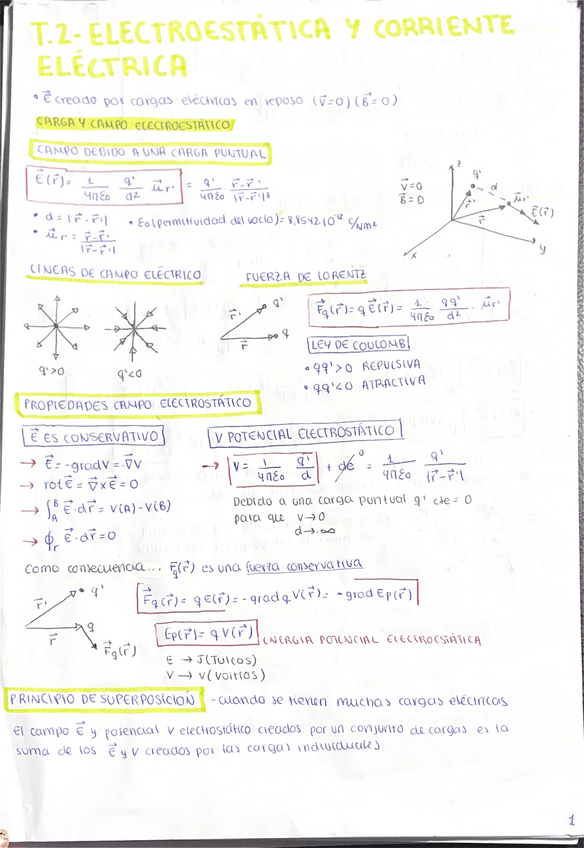 T.2- ELECTROESTÁTICA Y CORRIENTE
ELÉCTRICA
• E⃗ creado por cargas eléctricas en reposo (v⃗=0) (B⃗=0)
CARGA Y CAMPO ELECTROESTÁTICO
CAMPO DEBIDO A UNA CARGA PUNTUAL
E⃗(r⃗) = 1/4πε0 q'/d² μ⃗r' = q'/4πε0 r⃗-r⃗'/|r⃗-r⃗'|³
• d = |r⃗-r⃗'| • ε0 (permitividad del vacío) = 8,8542.10⁻¹² C/Nm²
• μ⃗r = r⃗-r⃗'/|r⃗-r⃗'|
v⃗=0
B⃗=0
z q' d μ⃗r' E⃗(r⃗) r⃗' r⃗ x y
LINEAS DE CAMPO ELÉCTRICO FUERZA DE LORENTZ
q'>0 q'<0
r⃗' q' r⃗ q
F⃗q(r⃗) = q E⃗(r⃗) = 1/4πε0 qq'/d² . μ⃗r'
LEY DE COULOMB
• qq'>0 REPULSIVA
• qq'<0 ATRACTIVA
PROPIEDADES CAMPO ELECTROSTÁTICO
E⃗ ES CONSERVATIVO V POTENCIAL ELECTROSTÁTICO
→ E⃗ = -grad V = -∇⃗V
→ rot E⃗ = ∇⃗ × E⃗ = 0
→ ∫_A^B E⃗·dr⃗ = V(A) - V(B)
→ ∮_Γ E⃗·dr⃗ = 0
→ V = 1/4πε0 q'/d + cte⁰ = 1/4πε0 q'/|r⃗-r⃗'|
Debido a una carga puntual q' cte = 0
para que V→0
d→∞
Como consecuencia... F⃗q(r⃗) es una fuerza conservativa
r⃗' q' r⃗ q F⃗q(r⃗)
F⃗q(r⃗) = q E(r⃗) = -grad q V(r⃗) = -grad Ep(r⃗)
Ep(r⃗) = q V(r⃗) ENERGIA POTENCIAL ELECTROESTÁTICA
E → J (Julios)
V → V (voltios)
PRINCIPIO DE SUPERPOSICIÓN - cuando se tienen muchas cargas eléctricas
El campo E⃗ y potencial V electrostático creados por un conjunto de cargas es la
suma de los E⃗ y V creados por las cargas individuales
1